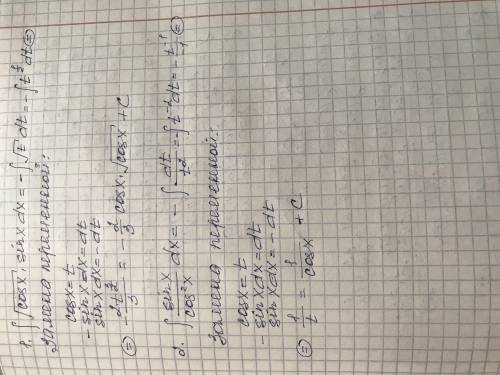 1. ∫√cosx · sinx dx = -∫√t dt = -∫t^½ dt ⊜
Замена переменной:
cosx = t
-sinx dx = dt
sinx dx = -dt
⊜ -2t^(3/2)/3 = -2/3 cosx · √cosx + C
2. ∫ sinx/cos²x dx = -∫ dt/t² = -∫t^-2 dt = - t^-1/1 ⊜
Замена переменной:
cosx = t
-sinx dx = dt
sinx dx = -dt
⊜ 1/t = 1/cosx + C